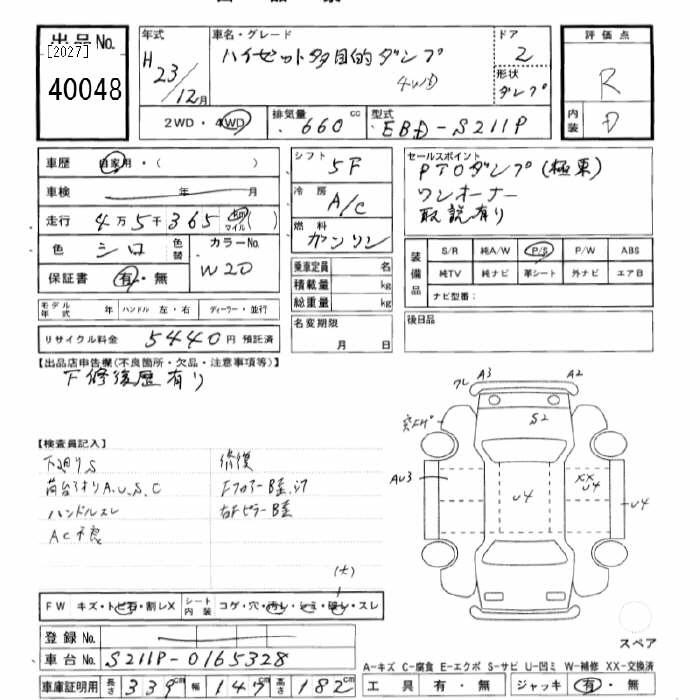 出品No.
[2027]
40048
年式
H
23/12月
車名・グレード
ハイゼット多目的ダンプ
4WD
ドア
2
形状
ダンプ
評価点
R
内装
D
2WD・4WD
排気量
660 cc
型式
EBD-S211P
車歴
自家用・( )
車検
年 月
走行
4万5千365 km マイル ( )
色
シロ
色替
カラーNo.
W20
保証書
有・無
シフト
5F
冷房
A/C
燃料
ガソリン
乗車定員 名
積載量 kg
総重量 kg
名変期限
月 日
セールスポイント
PTOダンプ(極東)
ワンオーナー
取説有り
装備品
S/R 純A/W P/S P/W ABS
純TV 純ナビ 革シート 外ナビ エアB
ナビ型番:
モデル年式 年 ハンドル 左・右 ディーラー・並行
リサイクル料金 5440円 預託済
後日品
【出品店申告欄(不良箇所・欠品・注意事項等)】
下修復歴有り
【検査員記入】
下廻りS
荷台アオリA.U.S.C
ハンドルスレ
AC不良
修復
右FピラーB歪
フレ
A3
A2
S2
AU3
U4
XX
U4
U4
(大)
FW キズ・トビ石・割レX
シート内装
コゲ・穴・汚レ・シミ・破レ・スレ
登録No.
車台No.
S211P-0165328
車庫証明用
長さ 339cm 幅 147cm 高さ 182cm
スペア
A-キズ C-腐食 E-エクボ S-サビ U-凹ミ W-補修 XX-交換済
工具 有・無 ジャッキ 有・無